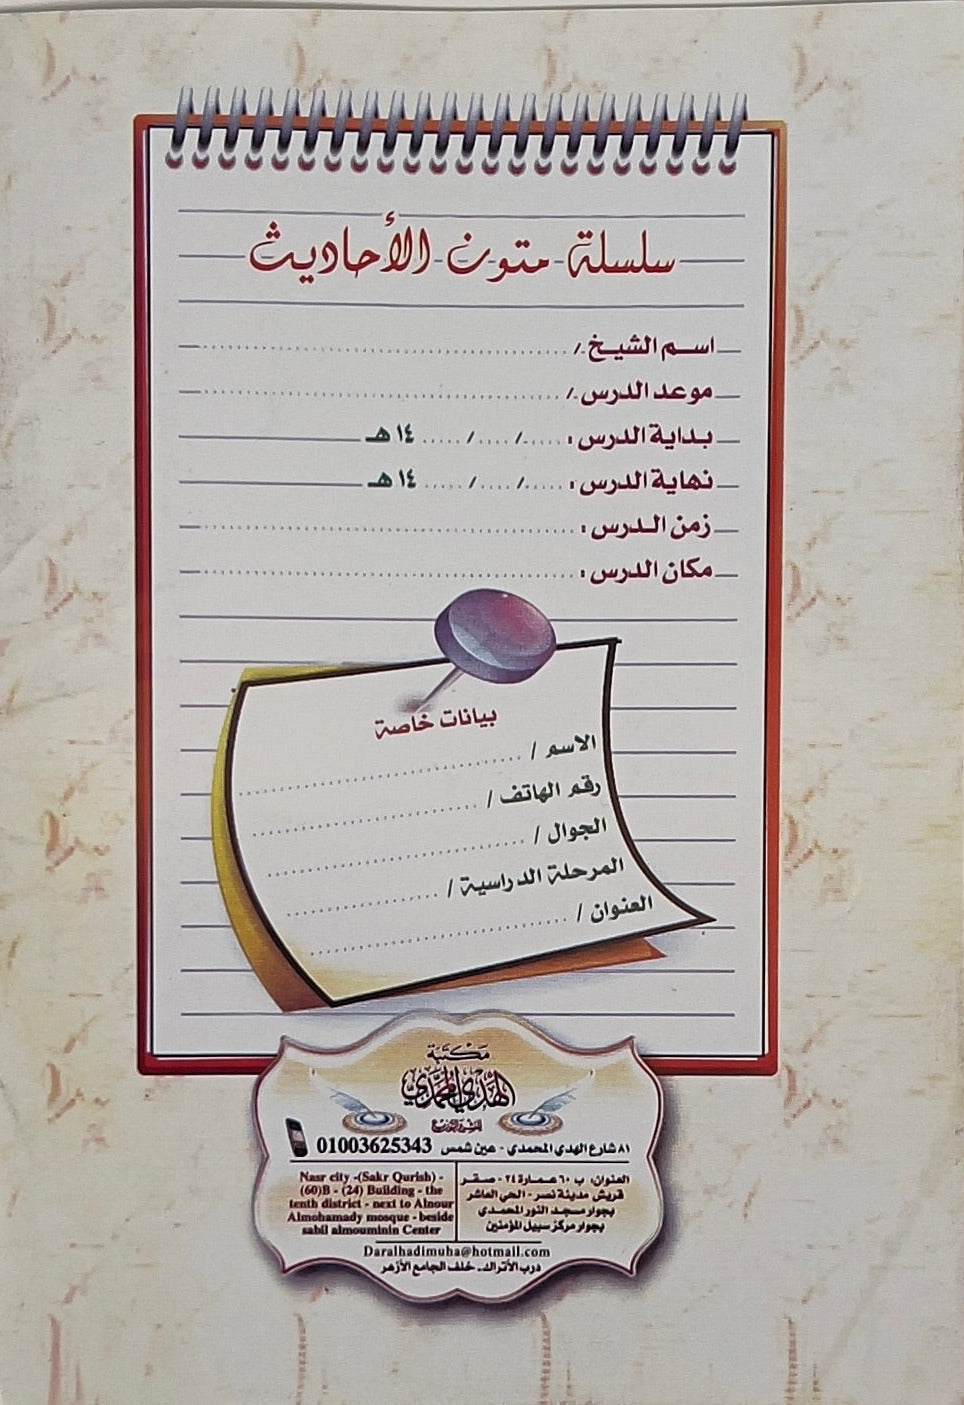 سلسلة متون الأحاديث
اسم الشيخ /
موعد الدرس /
بداية الدرس : ..... / .... / ..... ١٤ هـ
نهاية الدرس : ..... / .... / ..... ١٤ هـ
زمن الدرس :
مكان الدرس :
بيانات خاصة
الاسم /
رقم الهاتف /
الجوال /
المرحلة الدراسية /
العنوان /
مكتبة
الهدي المحمدي
للنشر والتوزيع
٨١ شارع الهدي المحمدي - عين شمس 01003625343
العنوان: ب ٦٠ عمارة ٢٤ - صقر
قريش مدينة نصر - الحي العاشر
بجوار مسجد النور المحمدي
بجوار مركز سبيل المؤمنين
Nasr city -(Sakr Qurish) -
(60)B - (24) Building - the
tenth district - next to Alnour
Almohamady mosque - beside
sabil almouminin Center
Daralhadimuha@hotmail.com
درب الأتراك - خلف الجامع الأزهر